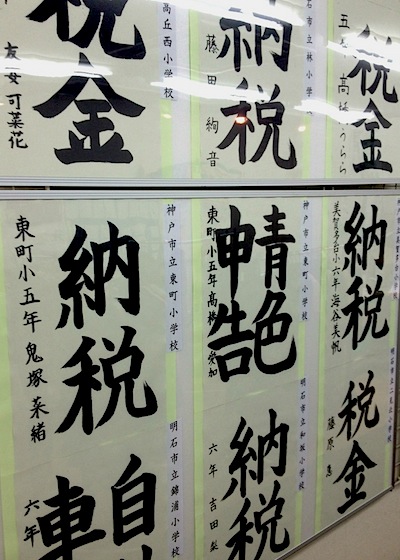 税金
うらら
石市立林小学校
納税
藤田絢音
高丘西小学校
税金
可菜花
納税
美賀多台小六年 海谷美帆
神戸市立東町小学校
青色
申告
東町小五年 高橋愛加
神戸市立東町小学校
納税
東町小五年 鬼塚菜緒
税金
藤原
明石市立和坂小学校
納税
六年 吉田梨
明石市立錦浦小学校
自
車
六年